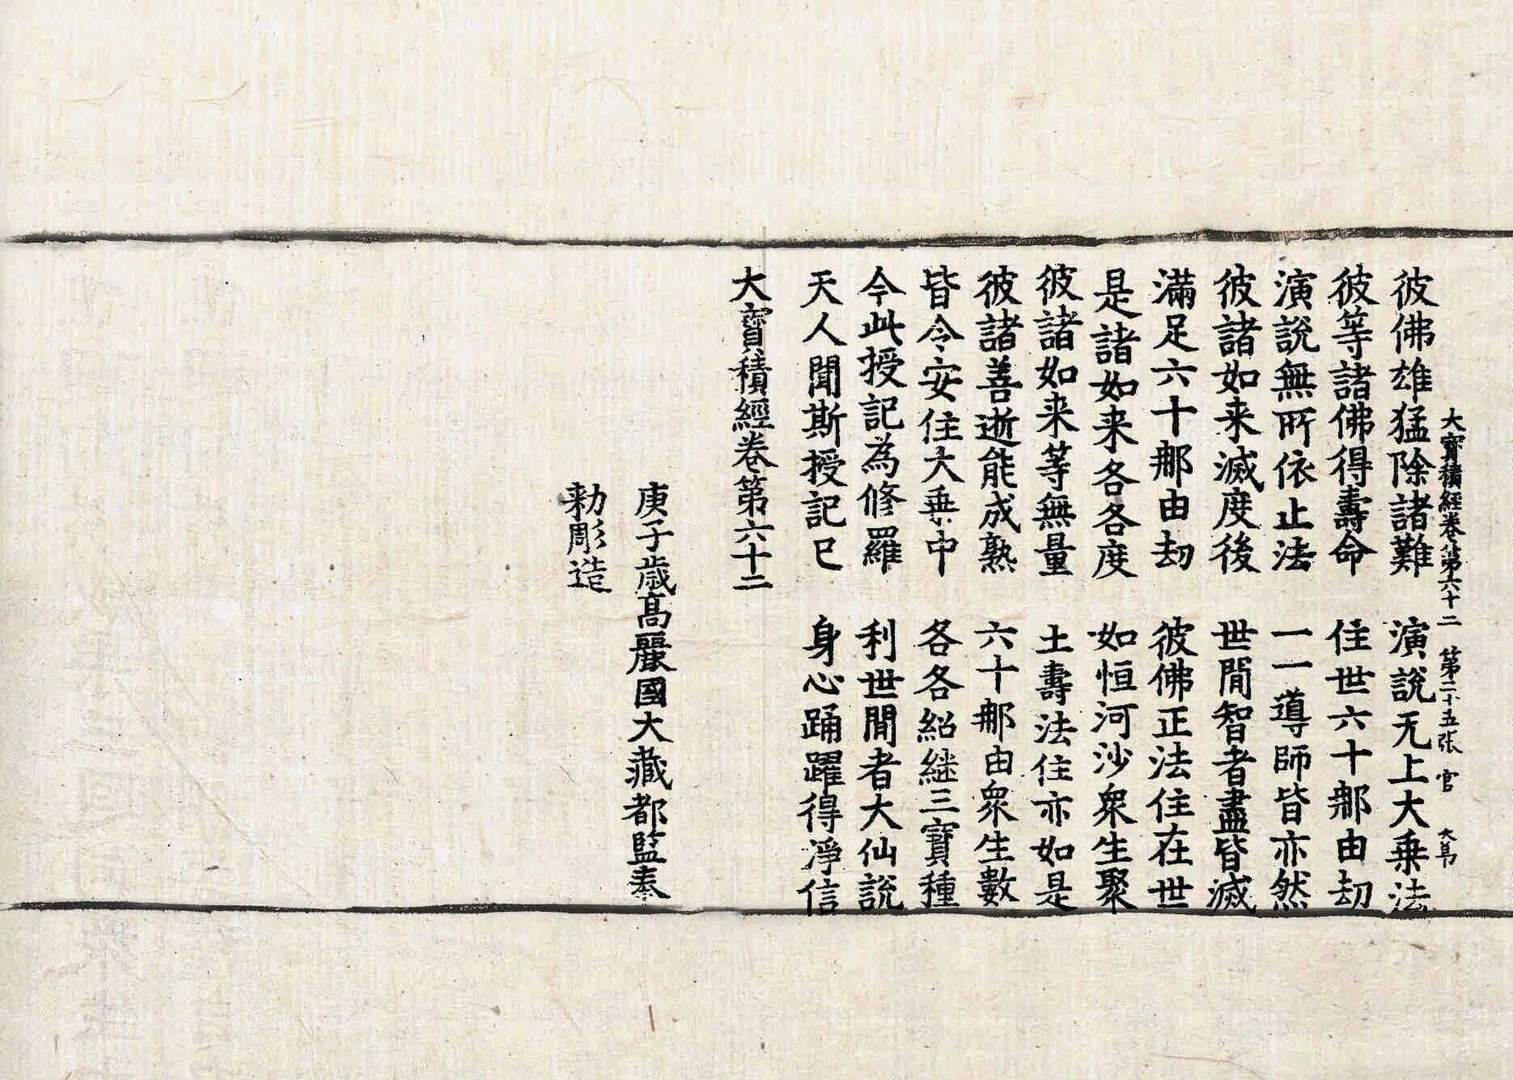 大寶積經卷第六十二 第二十五張 官
彼佛雄猛除諸難 演說无上大乗法
彼等諸佛得壽命 住世六十那由劫
演說無所依止法 一一導師皆亦然
彼諸如来滅度後 世間智者盡皆滅
滿足六十那由劫 彼佛正法住在世
是諸如来各各度 如恒河沙衆生聚
彼諸如来等無量 土壽法住亦如是
彼諸善逝能成熟 六十那由衆生數
皆令安住大乗中 各各紹継三寶種
今此授記為修羅 利世間者大仙說
天人聞斯授記已 身心踊躍得淨信
大寶積經卷第六十二
庚子歲高麗國大藏都監奉
勅彫造